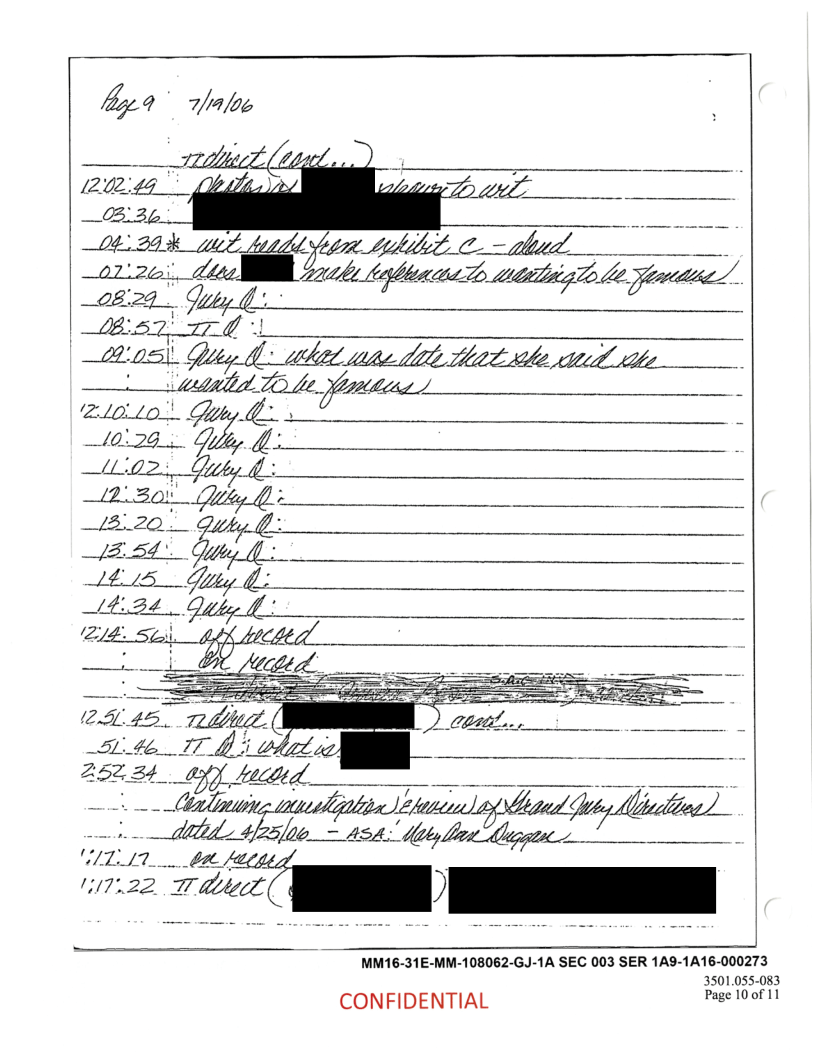 Page 9 7/19/06
π direct (cont...)
12:02:49 to wit
03:36
04:39* wit reads from exhibit C - aloud
07:26 does make references to wanting to be famous
08:29 Jury Q:
08:57 π Q:
09:05 Jury Q: what was date that she said she
wanted to be famous
12:10:10 Jury Q:
10:29 Jury Q:
11:02 Jury Q:
12:30 Jury Q:
13:20 Jury Q:
13:54 Jury Q:
14:15 Jury Q:
14:34 Jury Q:
12:14:56 off record
on record
12:51:45 π direct ( ) cont...
51:46 π Q: what is
2:52:34 off record
Continuing investigation review of Grand Jury Directives
dated 4/25/06 - ASA: Mary Ann Duggan
1:17:17 on record
1:17:22 π direct ( )
MM16-31E-MM-108062-GJ-1A SEC 003 SER 1A9-1A16-000273
3501.055-083
Page 10 of 11
CONFIDENTIAL